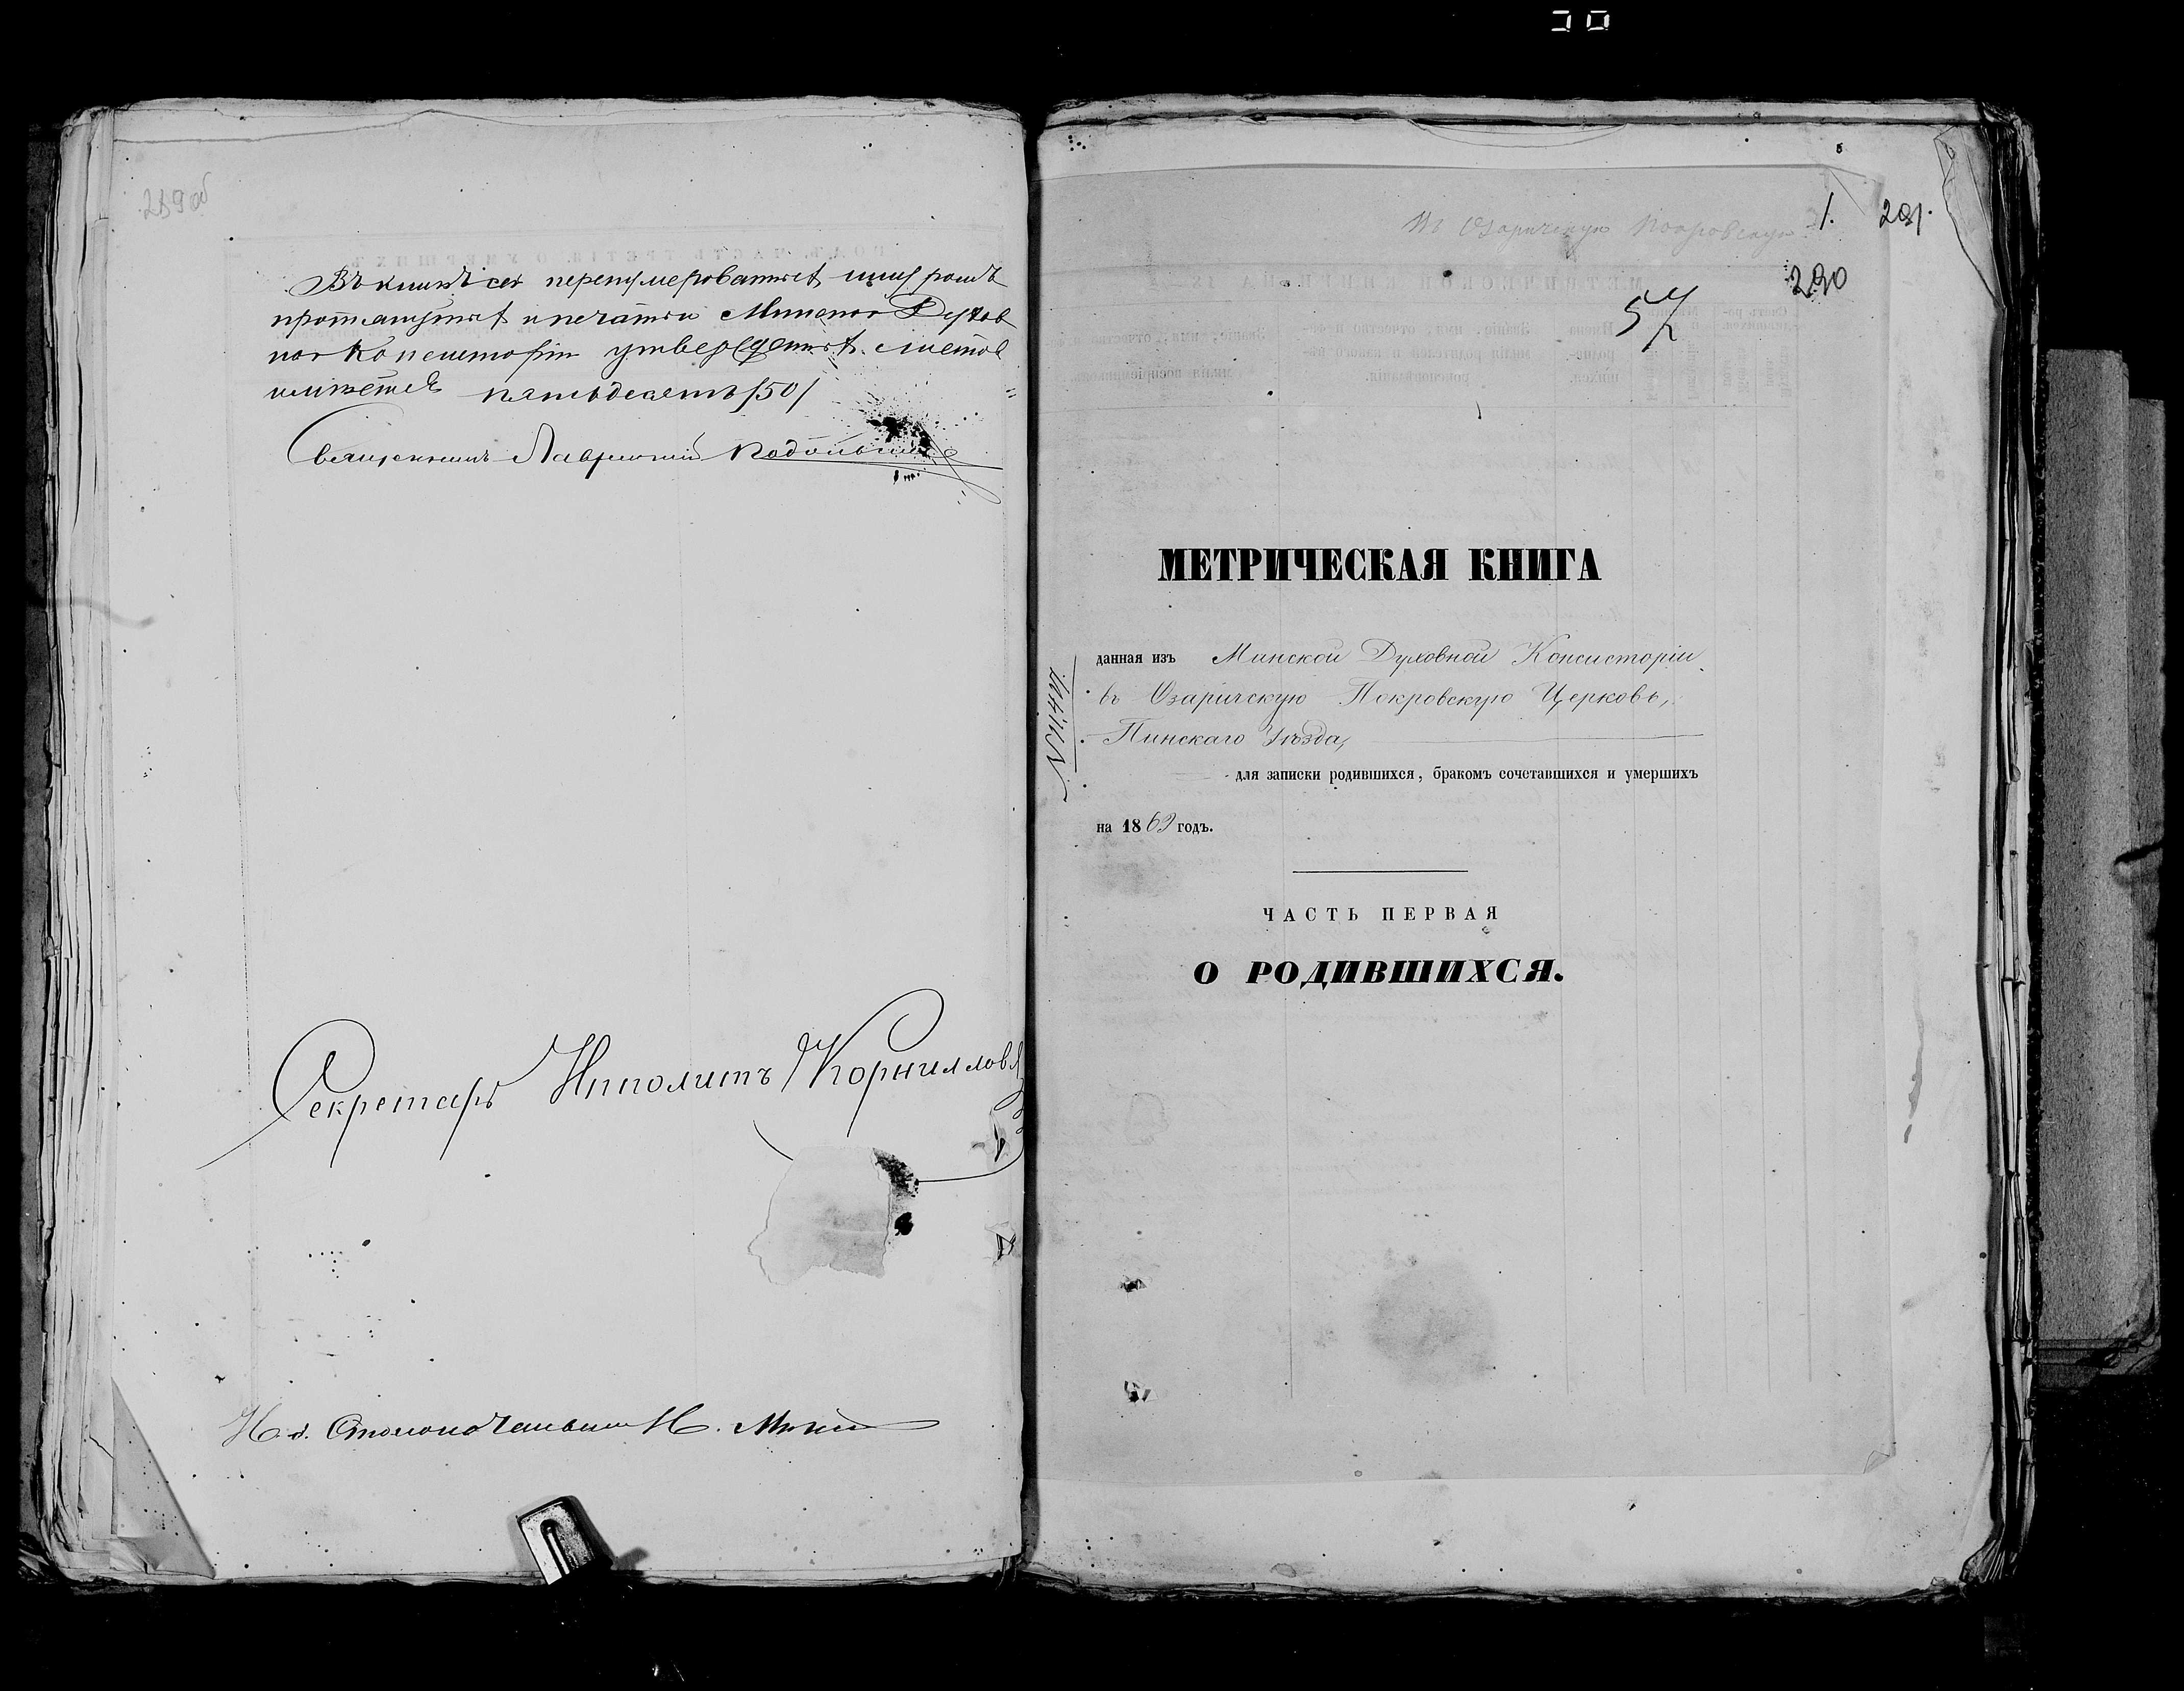 289об
Въ книгѣ сей перенумерованныхъ шнуромъ
протянутыхъ и печатью Минской Духов
ной Консисторіи утвержденныхъ листовъ
имѣется пятьдесятъ /50/
Священникъ Лаврентий
Секретарь Ипполитъ Корниллов
И. д. Столоначальника Н.
Въ Озаричскую Покровскую
1.
291.
290
57
МЕТРИЧЕСКАЯ КНИГА
данная изъ Минской Духовной Консисторіи
въ Озаричскую Покровскую Церковь,
Пинскаго Уѣзда,
для записки родившихся, бракомъ сочетавшихся и умершихъ
на 1869 годъ.
ЧАСТЬ ПЕРВАЯ
О РОДИВШИХСЯ.